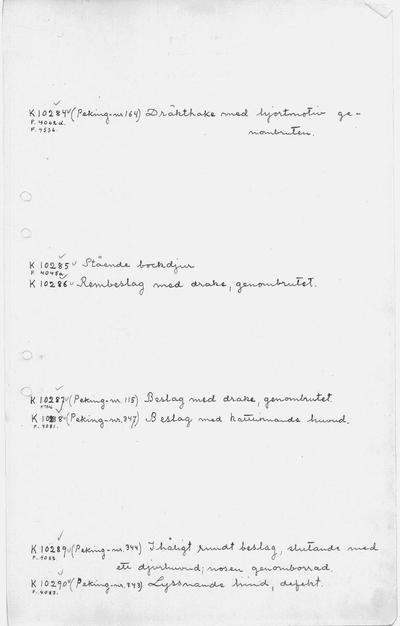 K 10284 (Peking-nr 164) Dräkthake med hjortmotiv ge-
F. 4042d.
nombruten.
K 10285 Stående bockdjur
K 10286 Rembeslag med drake, genombrutet.
K 10287 (Peking-nr. 115) Beslag med drake, genombrutet
K 10288 (Peking-nr. 347) Beslag med huvud.
F. 4081.
K 10289 (Peking-nr. 344) Ihåligt rundt beslag, slutande med
ett djurhuvud; nosen genomborrad.
K 10290 (Peking-nr. 343) Lyssnande hind, defekt.